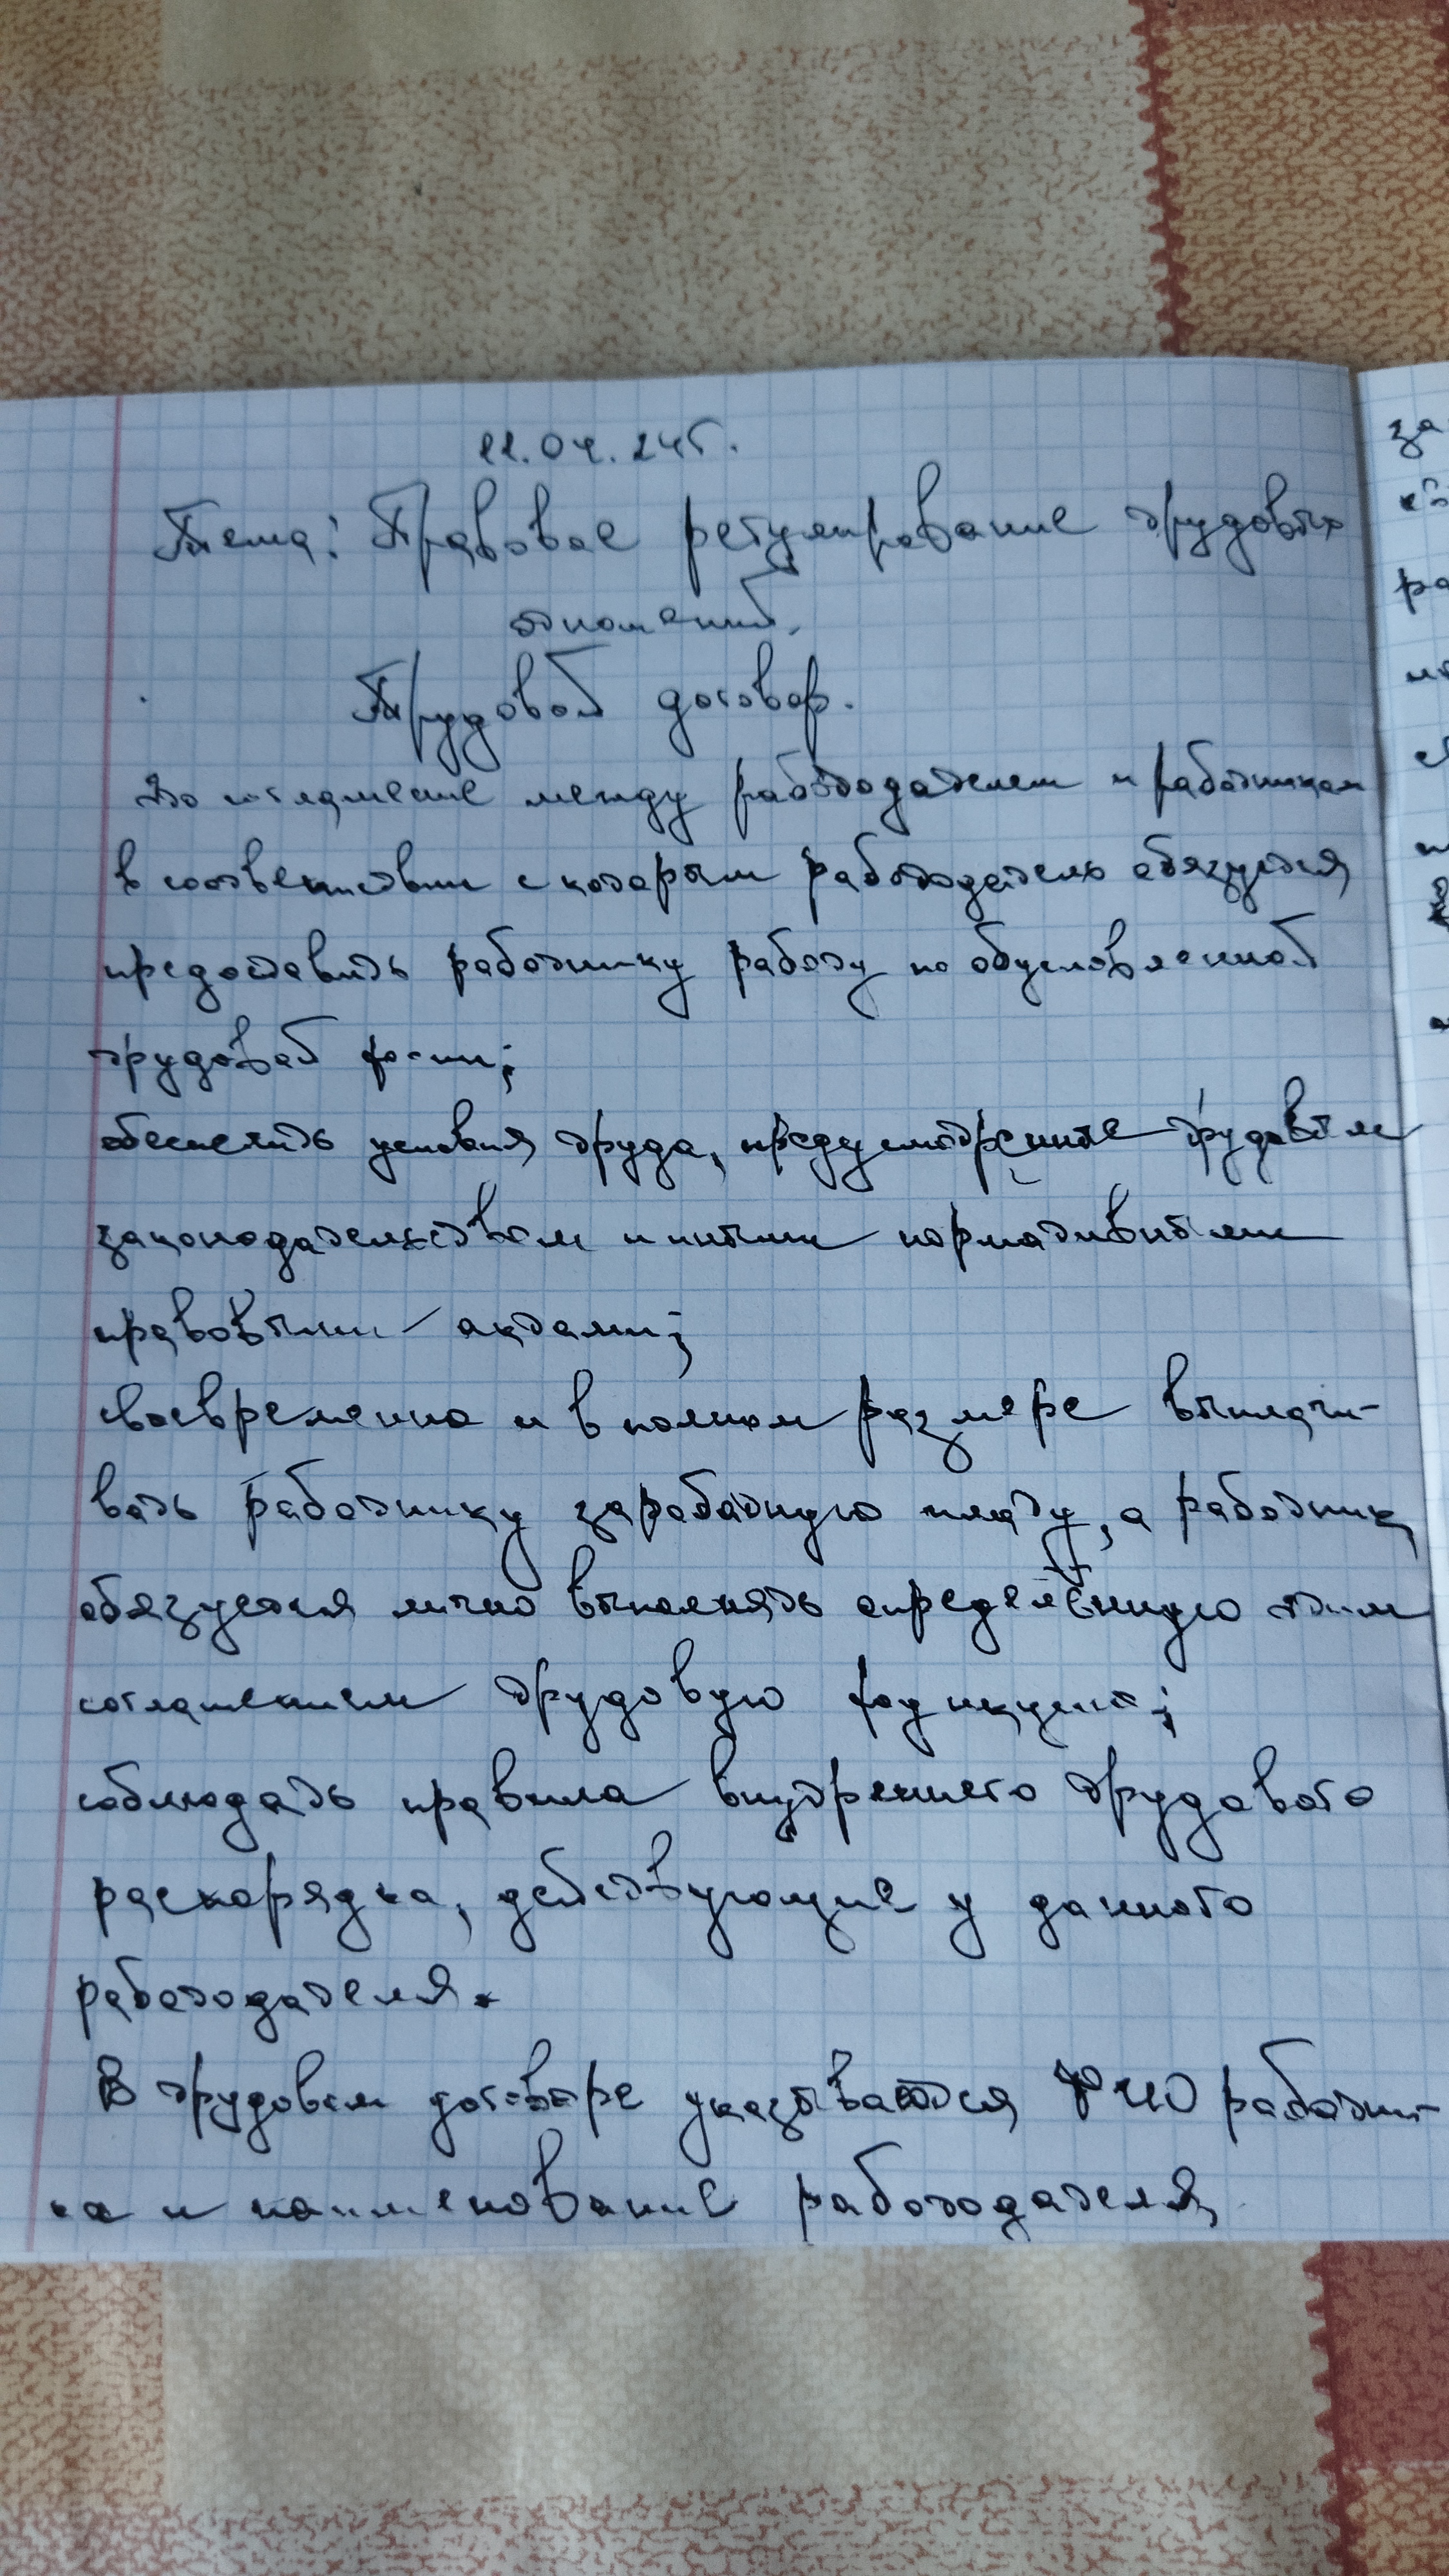 11.04.24г.
Тема: Правовое регулирование трудовых
отношений.
Трудовой договор.
Это соглашение между работодателем и работником
в соответствии с которым работодатель обязуется
предоставить работнику работу по обусловленной
трудовой
обеспечить условия труда, предусмотренные трудовым
законодательством и иными нормативными
правовыми актами;
своевременно и в полном размере выплачи-
вать работнику заработную плату, а работник
обязуется лично выполнять определённую этим
соглашением трудовую функцию;
соблюдать правила внутреннего трудового
распорядка, действующие у данного
работодателя.
В трудовом договоре указываются ФИО работни-
ка и наименование работодателя,
за
ра